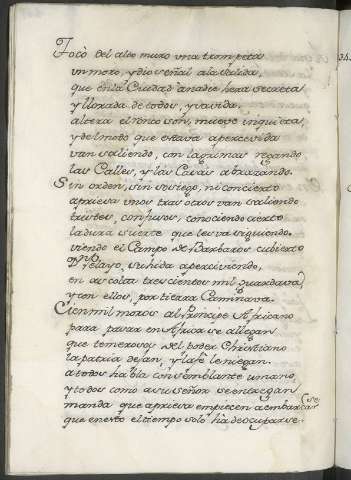 Tocò del alto muro vna trompeta
vn moro, y dio señal a la salida,
que en la Ciudad a nadie hera secreta
y llorada de todos, y savida,
altera el ronco son, mueve inquieta,
y del modo que estava apercevida
van saliendo, con lagrimas regando
las Calles, y las Casas abrazando.
Sin orden, sin sosiego, ni concierto
apriesa vnos tras otros van saliendo
tristes, confusos, conociendo cierto
la dura suerte que les va siguiendo.
viendo el Campo de Barbaros cubierto
Pelayo, su hida aperciviendo,
en escolta trescientos mil guardava,
y con ellos, por tierra Caminava.
Cien mil moros al Principe Africano
para pasar en Africa se allegan
que temerosos del poder Christiano
la patria dejan, y la fe le niegan.
a todos habla con semblante umano,
y todos como a su señor se entregan
manda que apriesa empiecen a embarcarse
que en esto el tiempo solo ha de ocuparse.